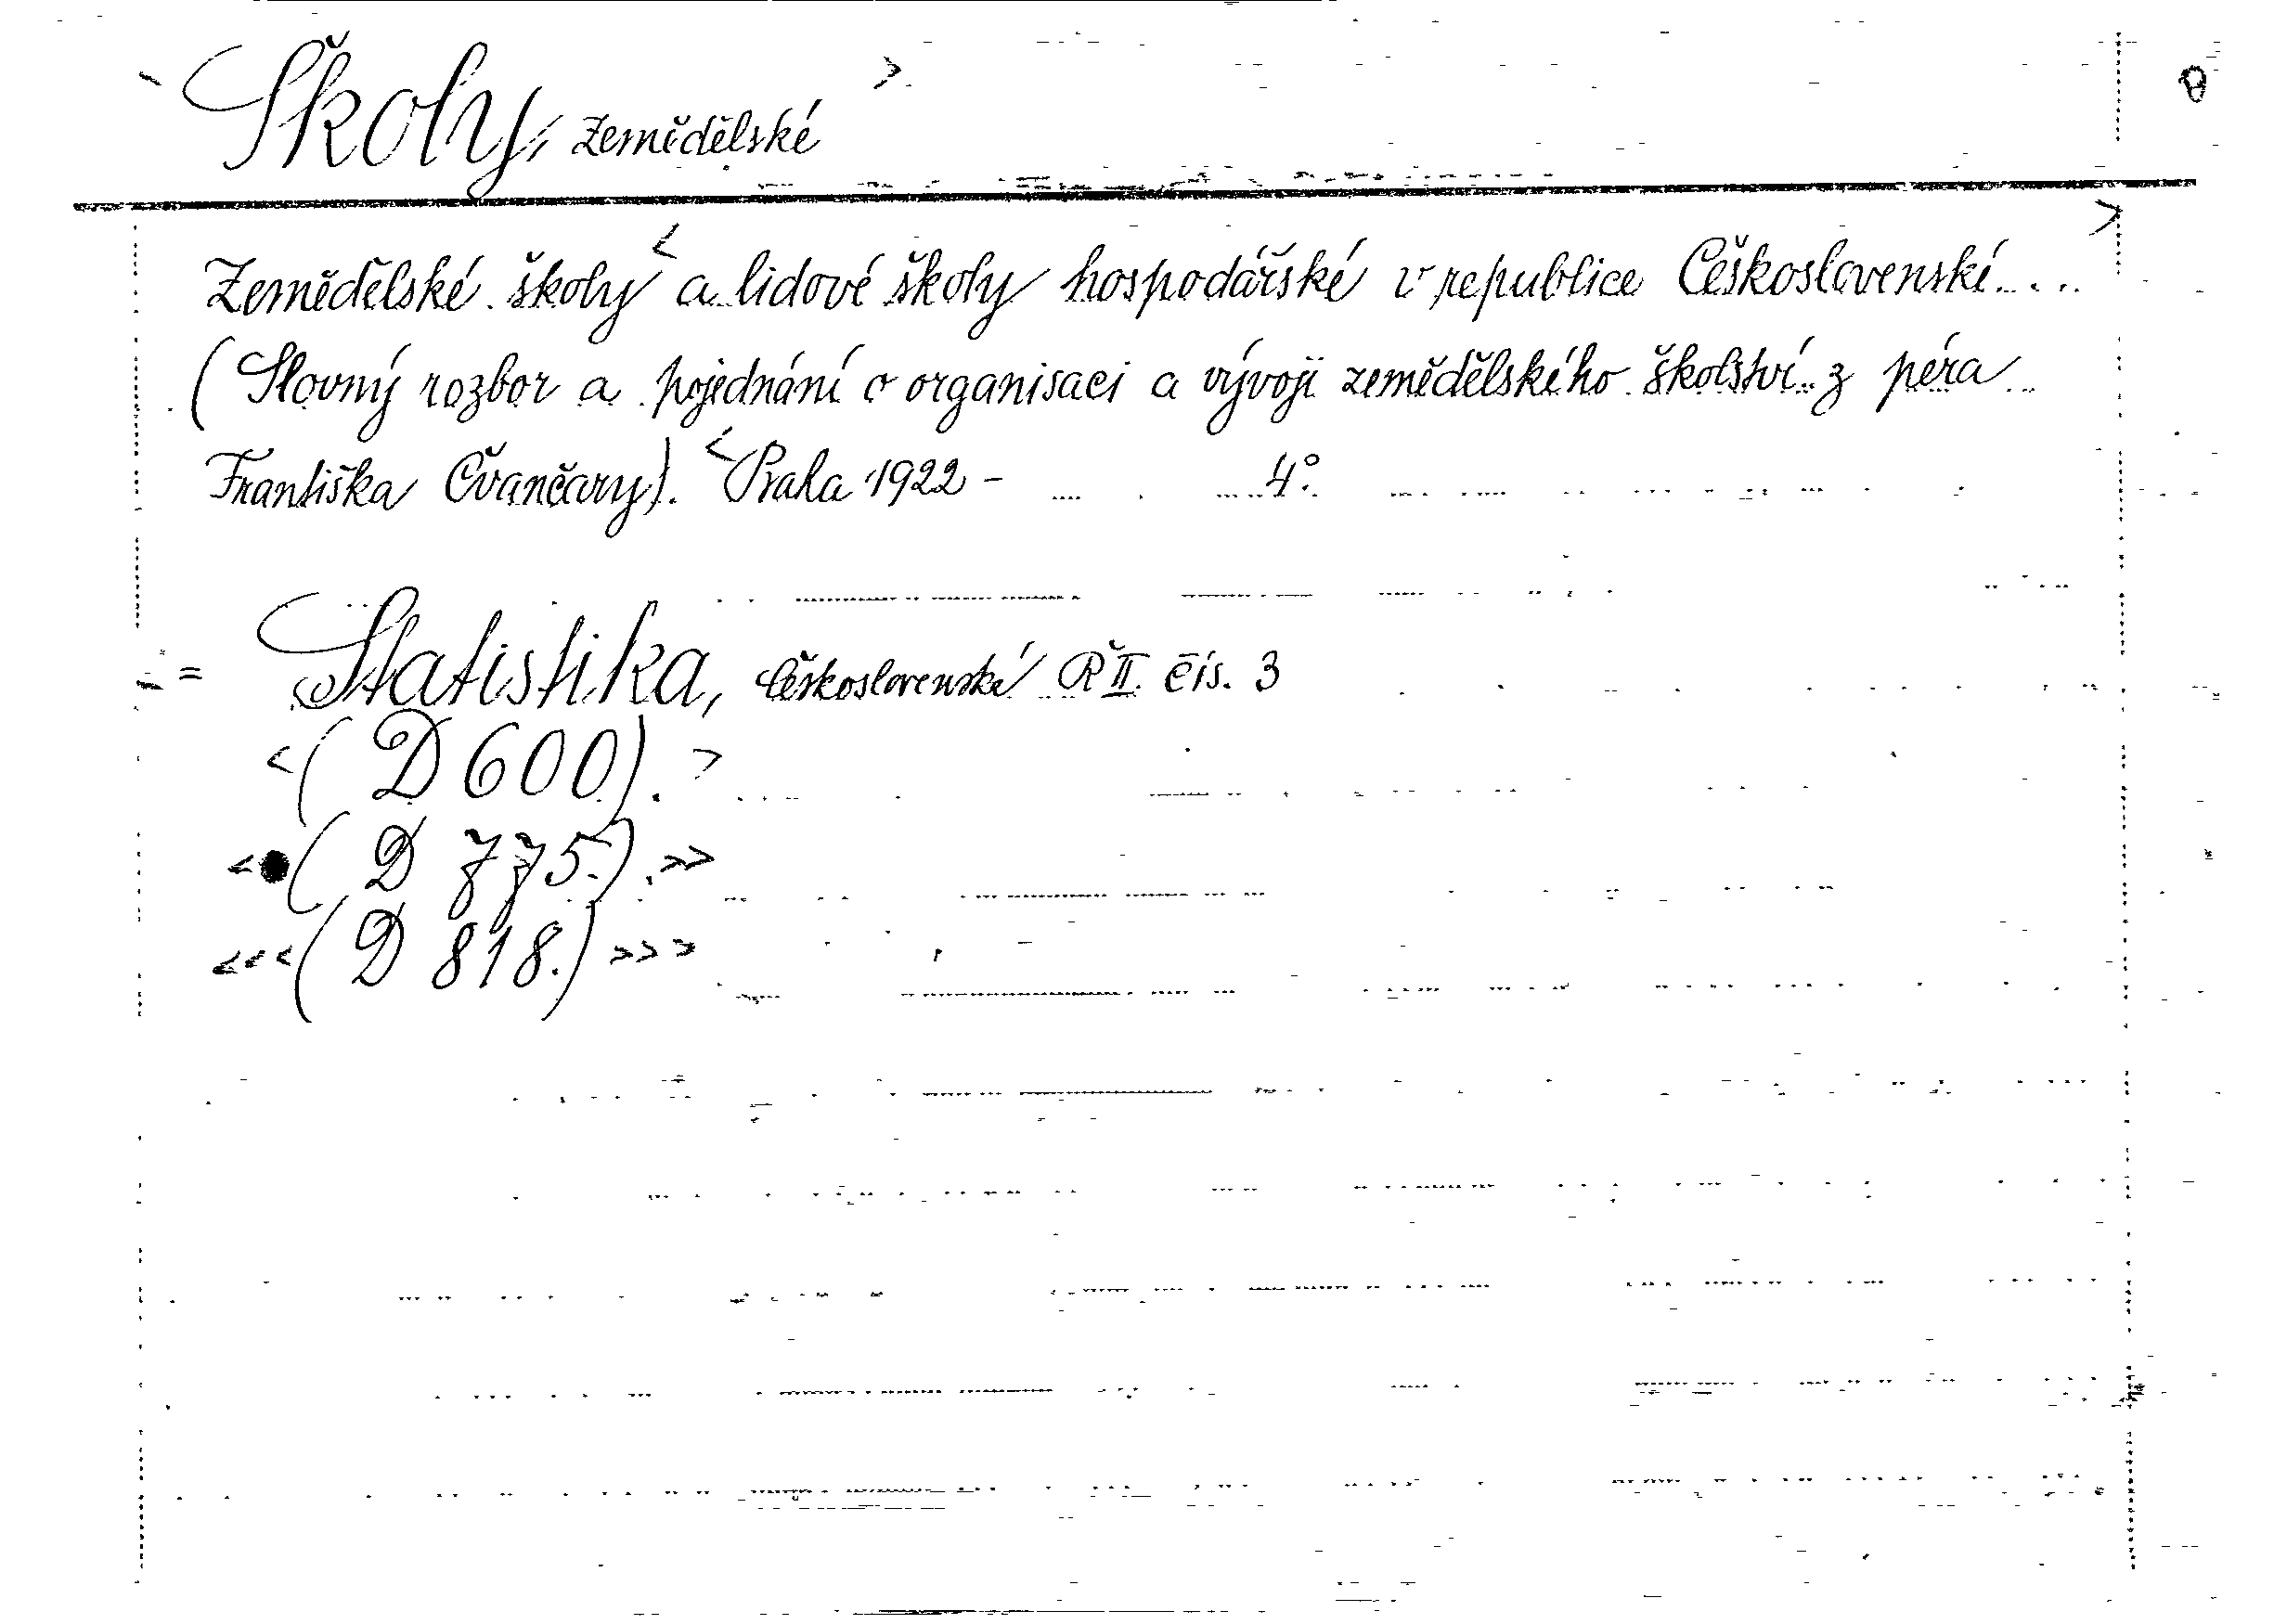 Školy, zemědělské
Zemědělské školy a lidové školy hospodářské v republice Československé....
(Slovný rozbor a pojednání o organisaci a vývoji zemědělského školství z péra
Františka Čvančary). Praha 1922 - 4°.
= Statistika, československá Ř II. čís. 3
<( D 600). >
<( D 775.). >>
<<<( D 818.) >>>